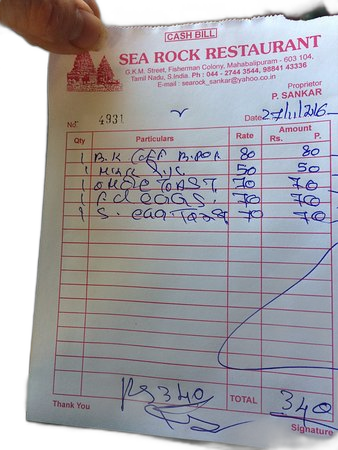 CASH BILL
SEA ROCK RESTAURANT
G.K.M. Street, Fisherman Colony, Mahabalipuram - 603 104.
Tamil Nadu, S.India. Ph : 044 - 2744 3544, 98841 43336
E-mail : searock_sankar@yahoo.co.in
Proprietor
P. SANKAR
No. 4931 Date 27/11/2016
Qty Particulars Rate Amount
Rs. P.
1 80 80
1 50 50
1 70 70
1 70 70
1 S. 70 70
Rs 340 TOTAL 340
Thank You Signature